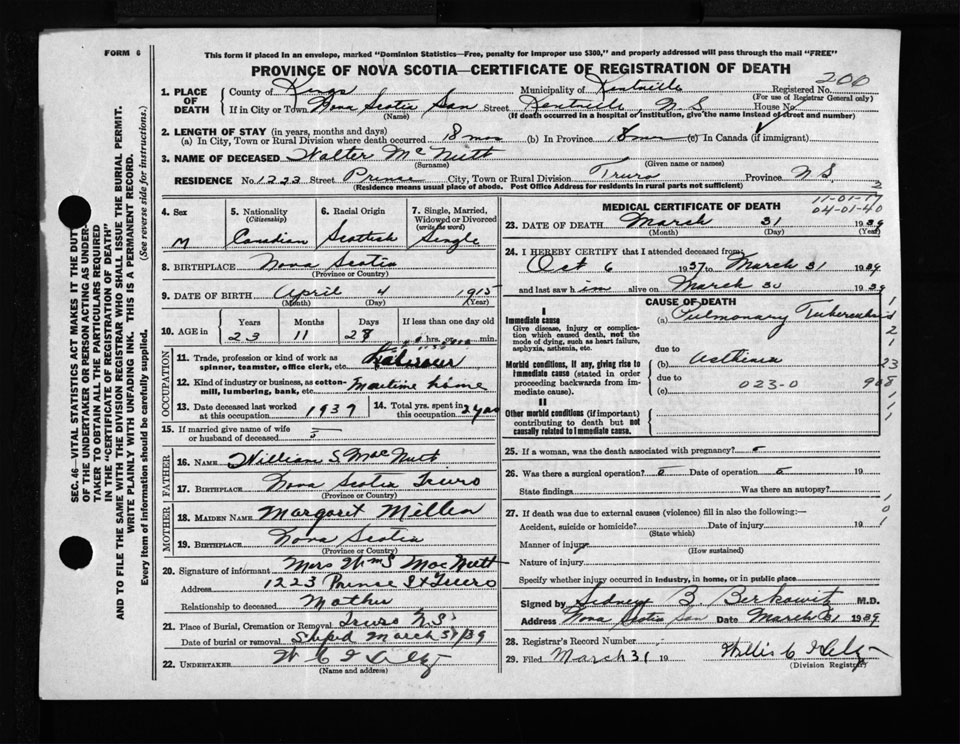 FORM 6
This form if placed in an envelope, marked "Dominion Statistics—Free, penalty for improper use $300," and properly addressed will pass through the mail "FREE"
PROVINCE OF NOVA SCOTIA—CERTIFICATE OF REGISTRATION OF DEATH
200
1. PLACE OF DEATH County of Kings Municipality of Kentville Registered No.
(For use of Registrar General only)
If in City or Town Nova Scotia San Street Kentville, N S House No.
(Name) (If death occurred in a hospital or institution, give the name instead of street and number)
2. LENGTH OF STAY (in years, months and days)
(a) In City, Town or Rural Division where death occurred 18 mos (b) In Province 18 mos (c) In Canada (if immigrant)
3. NAME OF DECEASED Walter McNutt
(Surname) (Given name or names)
RESIDENCE No. 1223 Street Prince City, Town or Rural Division Truro Province N S.
(Residence means usual place of abode. Post Office Address for residents in rural parts not sufficient)
4. Sex M
5. Nationality (Citizenship) Canadian
6. Racial Origin Scottish
7. Single, Married, Widowed or Divorced (write the word) Single
8. BIRTHPLACE Nova Scotia
(Province or Country)
9. DATE OF BIRTH April 4 1915
(Month) (Day) (Year)
10. AGE in Years Months Days If less than one day
23 11 27 hrs. or min.
OCCUPATION
11. Trade, profession or kind of work as spinner, teamster, office clerk, etc. Labourer
12. Kind of industry or business, as cotton-mill, lumbering, bank, etc. Maritime home
13. Date deceased last worked at this occupation 1937
14. Total yrs. spent in this occupation 2 yrs
15. If married give name of wife or husband of deceased
FATHER
16. NAME William S MacNutt
17. BIRTHPLACE Nova Scotia Truro
(Province or Country)
MOTHER
18. MAIDEN NAME Margaret Millen
19. BIRTHPLACE Nova Scotia
(Province or Country)
20. Signature of informant Mrs Wm S MacNutt
Address 1223 Prince St Truro
Relationship to deceased Mother
21. Place of Burial, Cremation or Removal Truro N.S.
Date of burial or removal Shiped March 31/39
22. UNDERTAKER
(Name and address)
MEDICAL CERTIFICATE OF DEATH
11-01-17
04-01-40
23. DATE OF DEATH March 31 1939
(Month) (Day) (Year)
24. I HEREBY CERTIFY that I attended deceased from
Oct 6 1937 to March 31 1939
and last saw him alive on March 30 1939
CAUSE OF DEATH
I
Immediate cause
Give disease, injury or complication which caused death, not the mode of dying, such as heart failure, asphyxia, asthenia, etc.
(a) Pulmonary Tuberculosis
due to
Morbid conditions, if any, giving rise to immediate cause (stated in order proceeding backwards from immediate cause).
(b) Asthenia
due to
(c) 023-0 908
II
Other morbid conditions (if important) contributing to death but not causally related to immediate cause.
25. If a woman, was the death associated with pregnancy?
26. Was there a surgical operation? Date of operation 19
State findings Was there an autopsy?
27. If death was due to external causes (violence) fill in also the following:—
Accident, suicide or homicide? Date of injury 19
(State which)
Manner of injury
(How sustained)
Nature of injury
Specify whether injury occurred in industry, in home, or in public place
Signed by Sidney B Berkowitz M.D.
Address Nova Scotia San Date March 31 1939
28. Registrar's Record Number
29. Filed March 31 19
(Division Registrar)
SEC. 46—VITAL STATISTICS ACT MAKES IT THE DUTY
OF THE UNDERTAKER OR PERSON ACTING AS UNDER-
TAKER TO OBTAIN ALL THE PARTICULARS REQUIRED
IN THE "CERTIFICATE OF REGISTRATION OF DEATH"
AND TO FILE THE SAME WITH THE DIVISION REGISTRAR WHO SHALL ISSUE THE BURIAL PERMIT.
WRITE PLAINLY WITH UNFADING INK. THIS IS A PERMANENT RECORD.
Every item of information should be carefully supplied. (See reverse side for instructions.)